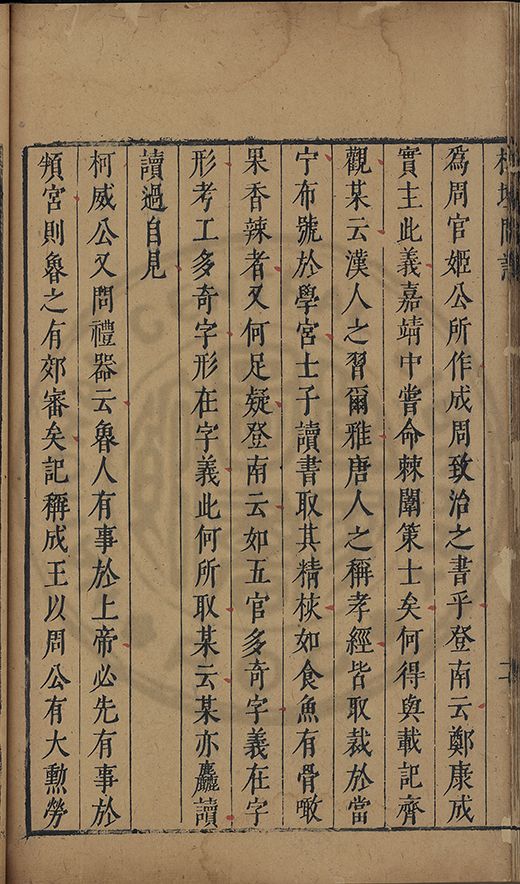 為周官姬公所作成周致治之書乎登南云鄭康成
實主此義嘉靖中嘗命棘闈策士矣何得與載記齊
觀某云漢人之習爾雅唐人之稱孝經皆取裁於當
宁布號於學宮士子讀書取其精校如食魚有骨噉
果香辣者又何足疑登南云如五官多奇字義在字
形考工多奇字形在字義此何所取某云某亦麤讀
讀過自見
柯威公又問禮器云魯人有事於上帝必先有事於
頖宮則魯之有郊審矣記稱成王以周公有大勳勞